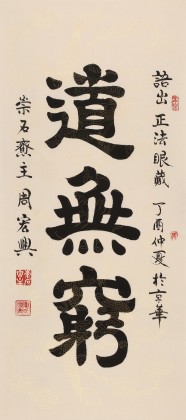 道無窮
語出正法眼藏 丁酉仲夏於京華
崇石齋主周宏興